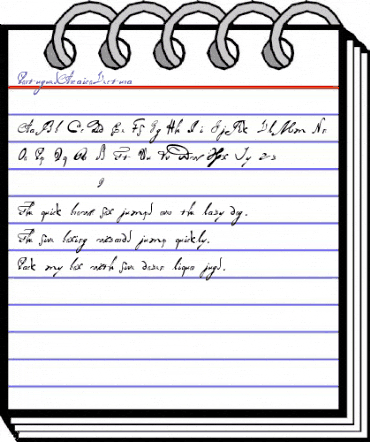 Aa Bb Cc Dd Ee Ff Gg Hh Ii Jj Kk Ll Mm Nn
Oo Pp Qq Rr Ss Tt Uu Vv Ww Xx Yy Zz
The quick brown fox jumped over the lazy dog.
The five boxing wizards jump quickly.
Pack my box with five dozen liquor jugs.